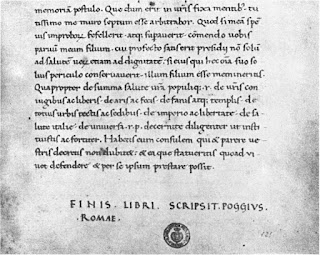 memoriã postulo. Que dum erit in uris̃ fixa mentib: tu
tissimo me muro septum esse arbitrabor. Quod si meã spem
uis improboꝝ fefellerit atq; supauerit. comendo uobis
paruũ meum filium. cui profecto satis erit presidij nõ solũ
ad salutẽ uerũ etiam ad dignitatẽ. si eius qui hec oĩa suo so
lius periculo conseruauerit. illum filium esse memineritis.
Quapropter de summa salute urã populiq; r. de uris̃ con
iugibus ac liberis. de aris ac focis. de fanis atq; templis. de
totius urbis tectis ac sedibus. de imperio ac libertate. de sa
lute italie. de uniuersa .r.p. decernite diligenter ut insti
tuistis ac fortiter. Habetis eum consulem qui & parere ue
stris decretis non dubitet. & ea que statueritis quoad ui
uet defendere & per se ipsum prestare possit.
FINIS. LIBRI. SCRIPSIT. POGGIVS.
.ROMAE.
121